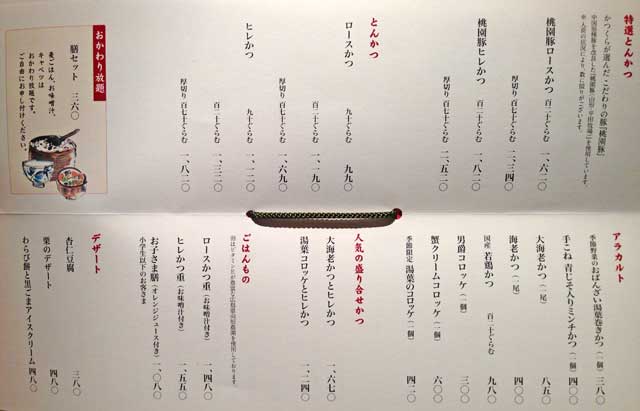 特選とんかつ
かつくらが選んだ こだわりの豚「桃園豚」
中国原種豚を改良した「桃園豚」（山形・平田牧場）を使用しています。
桃園豚ロースかつ 百二十ぐらむ 一、六二〇
厚切り 百七十ぐらむ 二、三四〇
桃園豚ヒレかつ 百二十ぐらむ 一、八二〇
厚切り 百七十ぐらむ 二、五二〇
とんかつ
ロースかつ 九十ぐらむ 九九〇
百二十ぐらむ 一、二九〇
厚切り 百七十ぐらむ 一、六九〇
ヒレかつ 九十ぐらむ 一、一二〇
百二十ぐらむ 一、三二〇
厚切り 百七十ぐらむ 一、八二〇
おかわり放題
膳セット 三六〇
麦ごはん、お味噌汁、
キャベツは
おかわり放題です。
ご自由にお申し付けください。
アラカルト
季節野菜のおばんざい湯葉巻きかつ（一個） 三八〇
手こね 青じそ入りミンチかつ（一個） 四〇〇
大海老かつ（一尾） 八五〇
海老かつ（一尾） 四〇〇
国産 若鶏かつ 百二十ぐらむ 九八〇
男爵コロッケ（一個） 三〇〇
蟹クリームコロッケ（一個） 六〇〇
季節限定 湯葉のコロッケ（一個） 四二〇
人気の盛り合せかつ
大海老かつとヒレかつ 一、六七〇
湯葉コロッケとヒレかつ 一、二四〇
ごはんもの
ロースかつ重（お味噌汁付き） 一、四八〇
ヒレかつ重（お味噌汁付き） 一、五五〇
お子さま膳（オレンジジュース付き） 一、〇八〇
小学生以下のお客さま
デザート
杏仁豆腐 三八〇
栗のデザート 四八〇
わらび餅と黒ごまアイスクリーム 四八〇